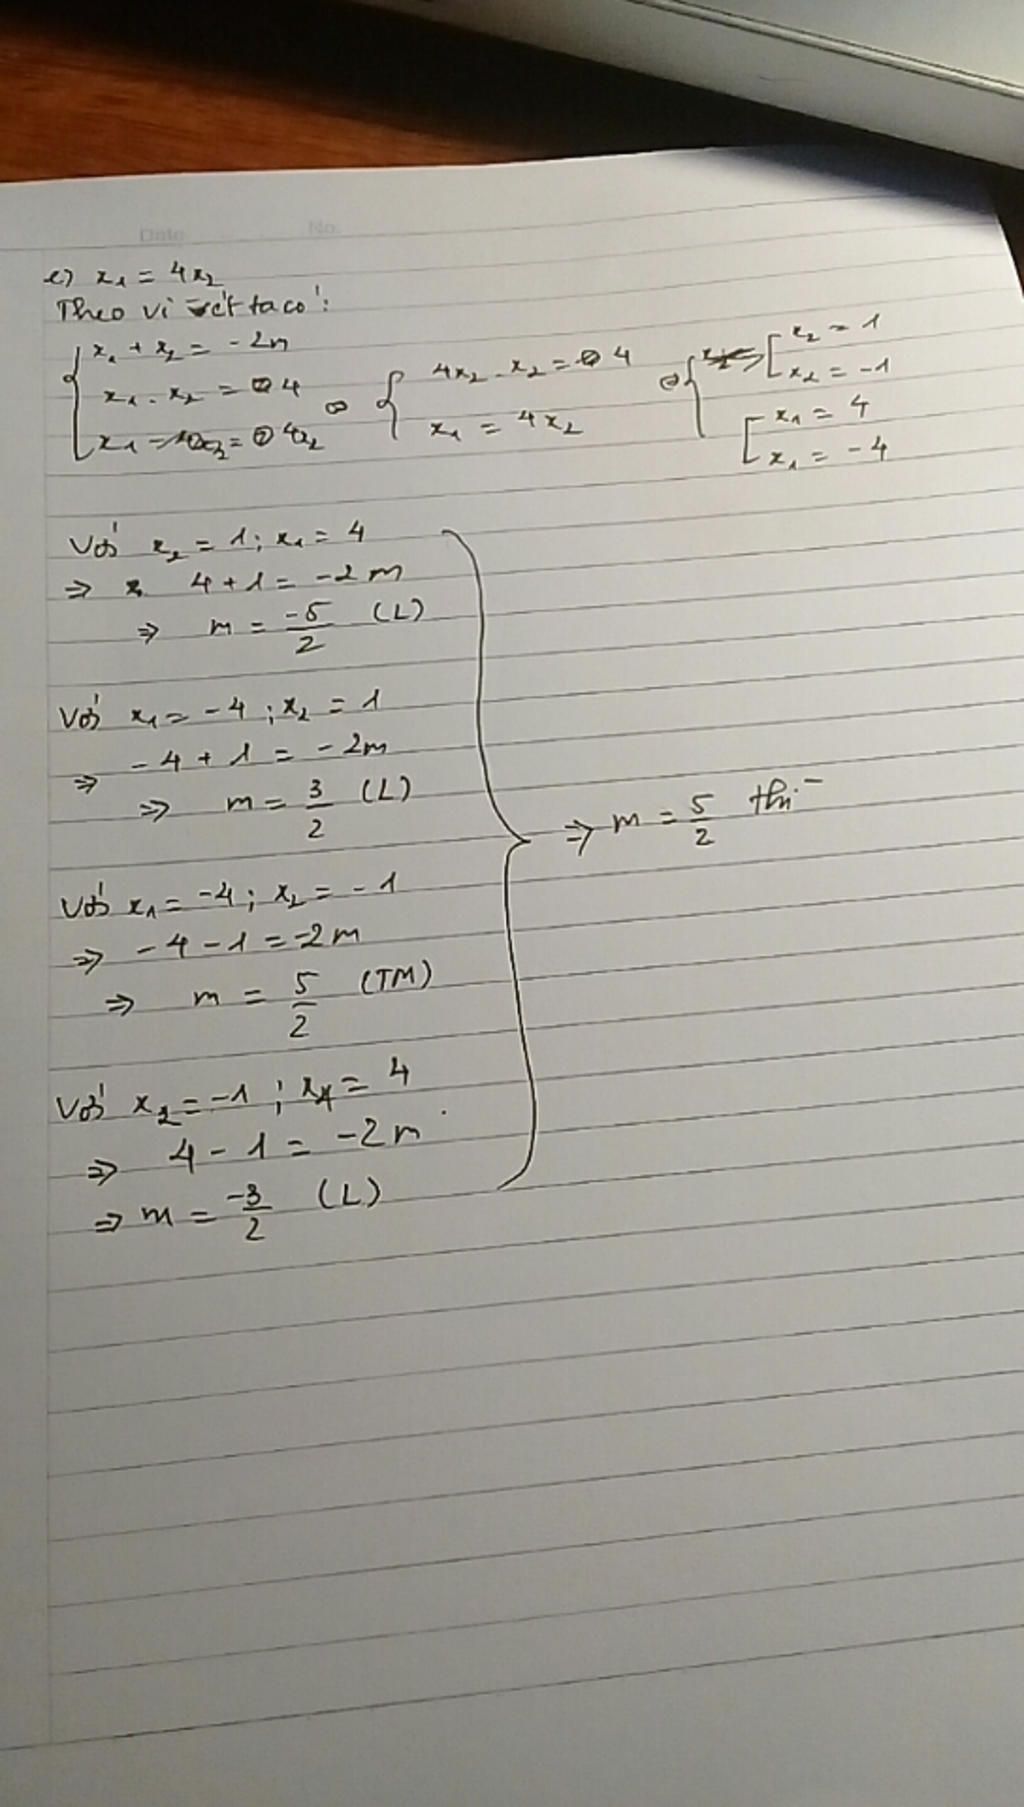 Date No.
e) x₁ = 4x₂
Theo vi ét ta có:
x₁ + x₂ = -2m
x₁ . x₂ = 4
x₁ = 4x₂
⇔ { 4x₂ . x₂ = 4
x₁ = 4x₂
⇔ { [ x₂ = 1
x₂ = -1
[ x₁ = 4
x₁ = -4
Với x₂ = 1 ; x₁ = 4
⇒ 4 + 1 = -2m
⇒ m = -5/2 (L)
Với x₁ = -4 ; x₂ = 1
⇒ -4 + 1 = -2m
⇒ m = 3/2 (L)
Với x₁ = -4 ; x₂ = -1
⇒ -4 - 1 = -2m
⇒ m = 5/2 (TM)
Với x₂ = -1 ; x₁ = 4
⇒ 4 - 1 = -2m
⇒ m = -3/2 (L)
⇒ m = 5/2 thì